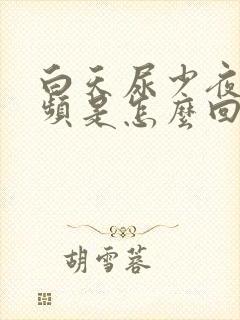 白天尿少夜
频是怎麼回
胡雪蓉